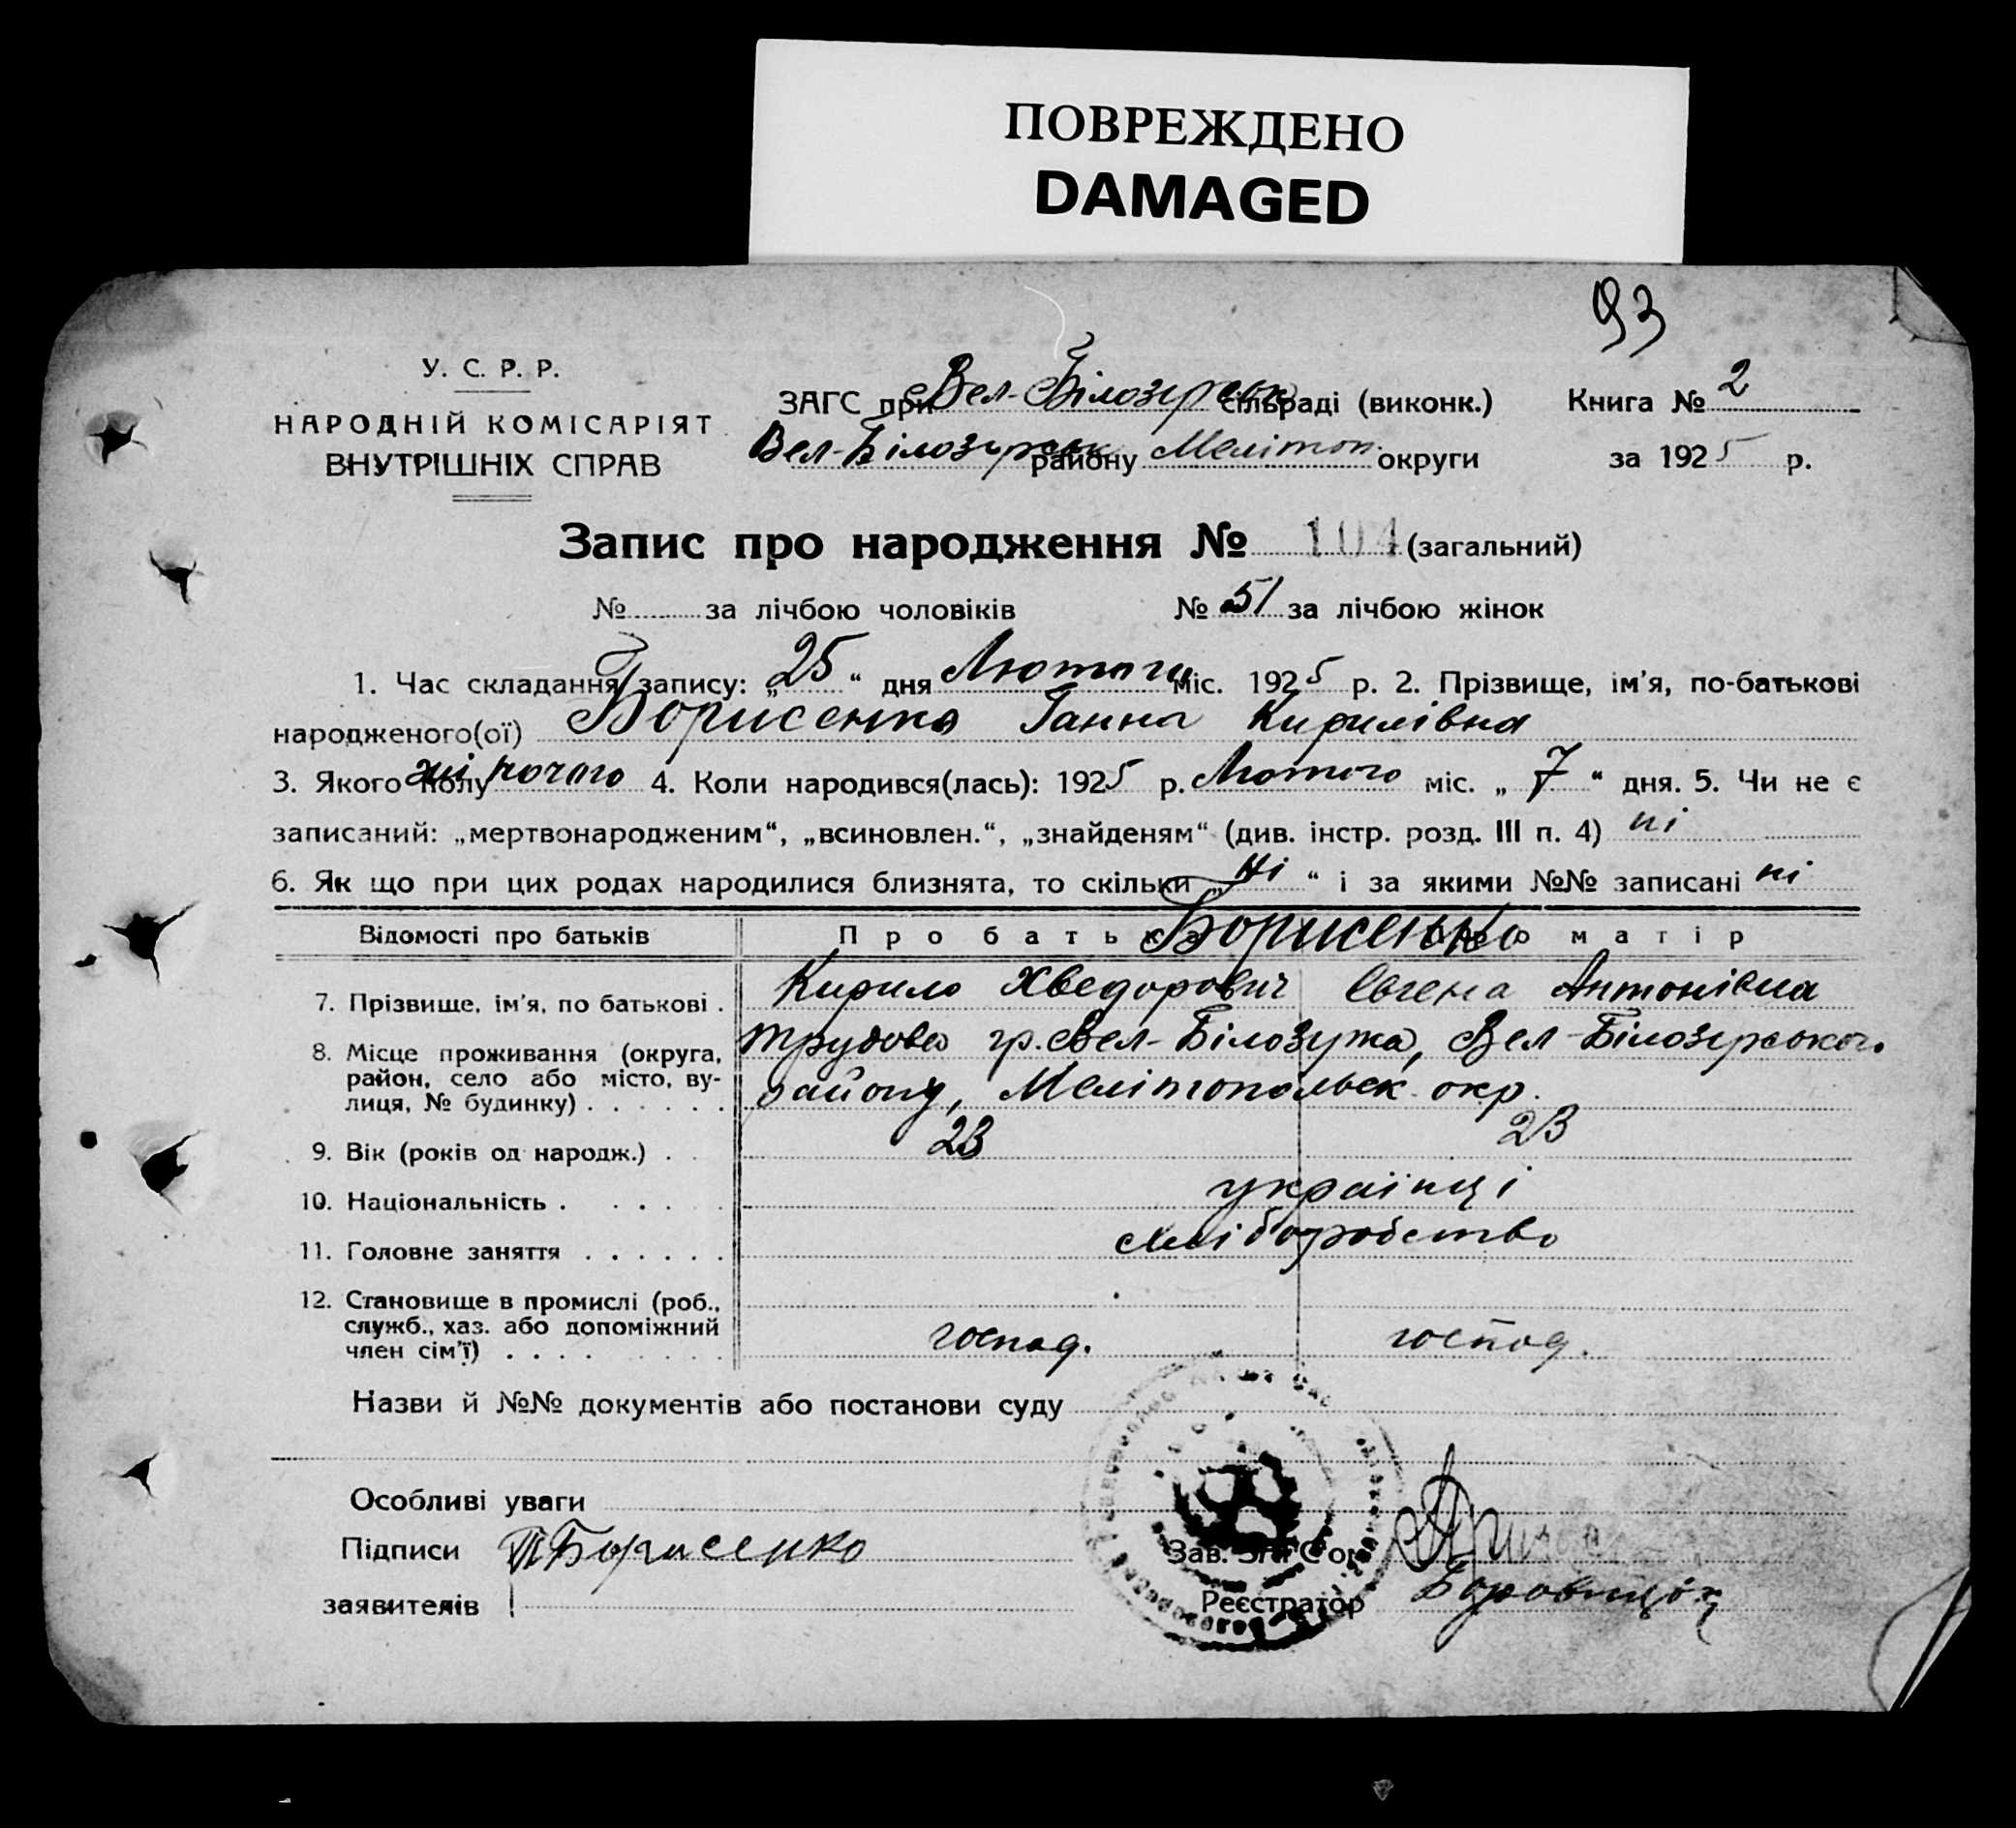 ПОВРЕЖДЕНО
DAMAGED
93
У. С. Р. Р.
НАРОДНІЙ КОМІСАРІЯТ
ВНУТРІШНІХ СПРАВ
ЗАГС при Вел-Білозерськ сільраді (виконк.)
Вел-Білозерськ району Мелітоп. округи
Книга № 2
за 1925 р.
Запис про народження № 104 (загальний)
№ за лічбою чоловіків № 51 за лічбою жінок
1. Час складання запису: „25“ дня Лютого міс. 1925 р. 2. Прізвище, ім'я, по-батькові
народженого(ої) Борисенко Ганна Кирилівна
3. Якого полу жіночого 4. Коли народився(лась): 1925 р. Лютого міс. „7“ дня. 5. Чи не є
записаний: „мертвонародженим“, „всиновлен.“, „знайденям“ (див. інстр. розд. III п. 4) ні
6. Як що при цих родах народилися близнята, то скільки „ні“ і за якими №№ записані ні
Відомості про батьків Про батька Борисенко Про матір
7. Прізвище, ім'я, по батькові . Кирило Хведорович Евгена Антонівна
8. Місце проживання (округа, район, село або місто, ву-
лиця, № будинку) . . . . . .
трудова гр. Вел-Білозерка, Вел-Білозерського
району, Мелітопольськ. окр.
9. Вік (років од народж.) . . 23 23
10. Національність . . . . . українці
11. Головне заняття . . . . . . хліборобство
12. Становище в промислі (роб.,
служб., хаз. або допоміжний
член сім'ї) . . . . господ. господ.
Назви й №№ документів або постанови суду
Особливі уваги
Підписи Борисенко
заявителів
Зав. ЗАГС'ом
Реєстратор